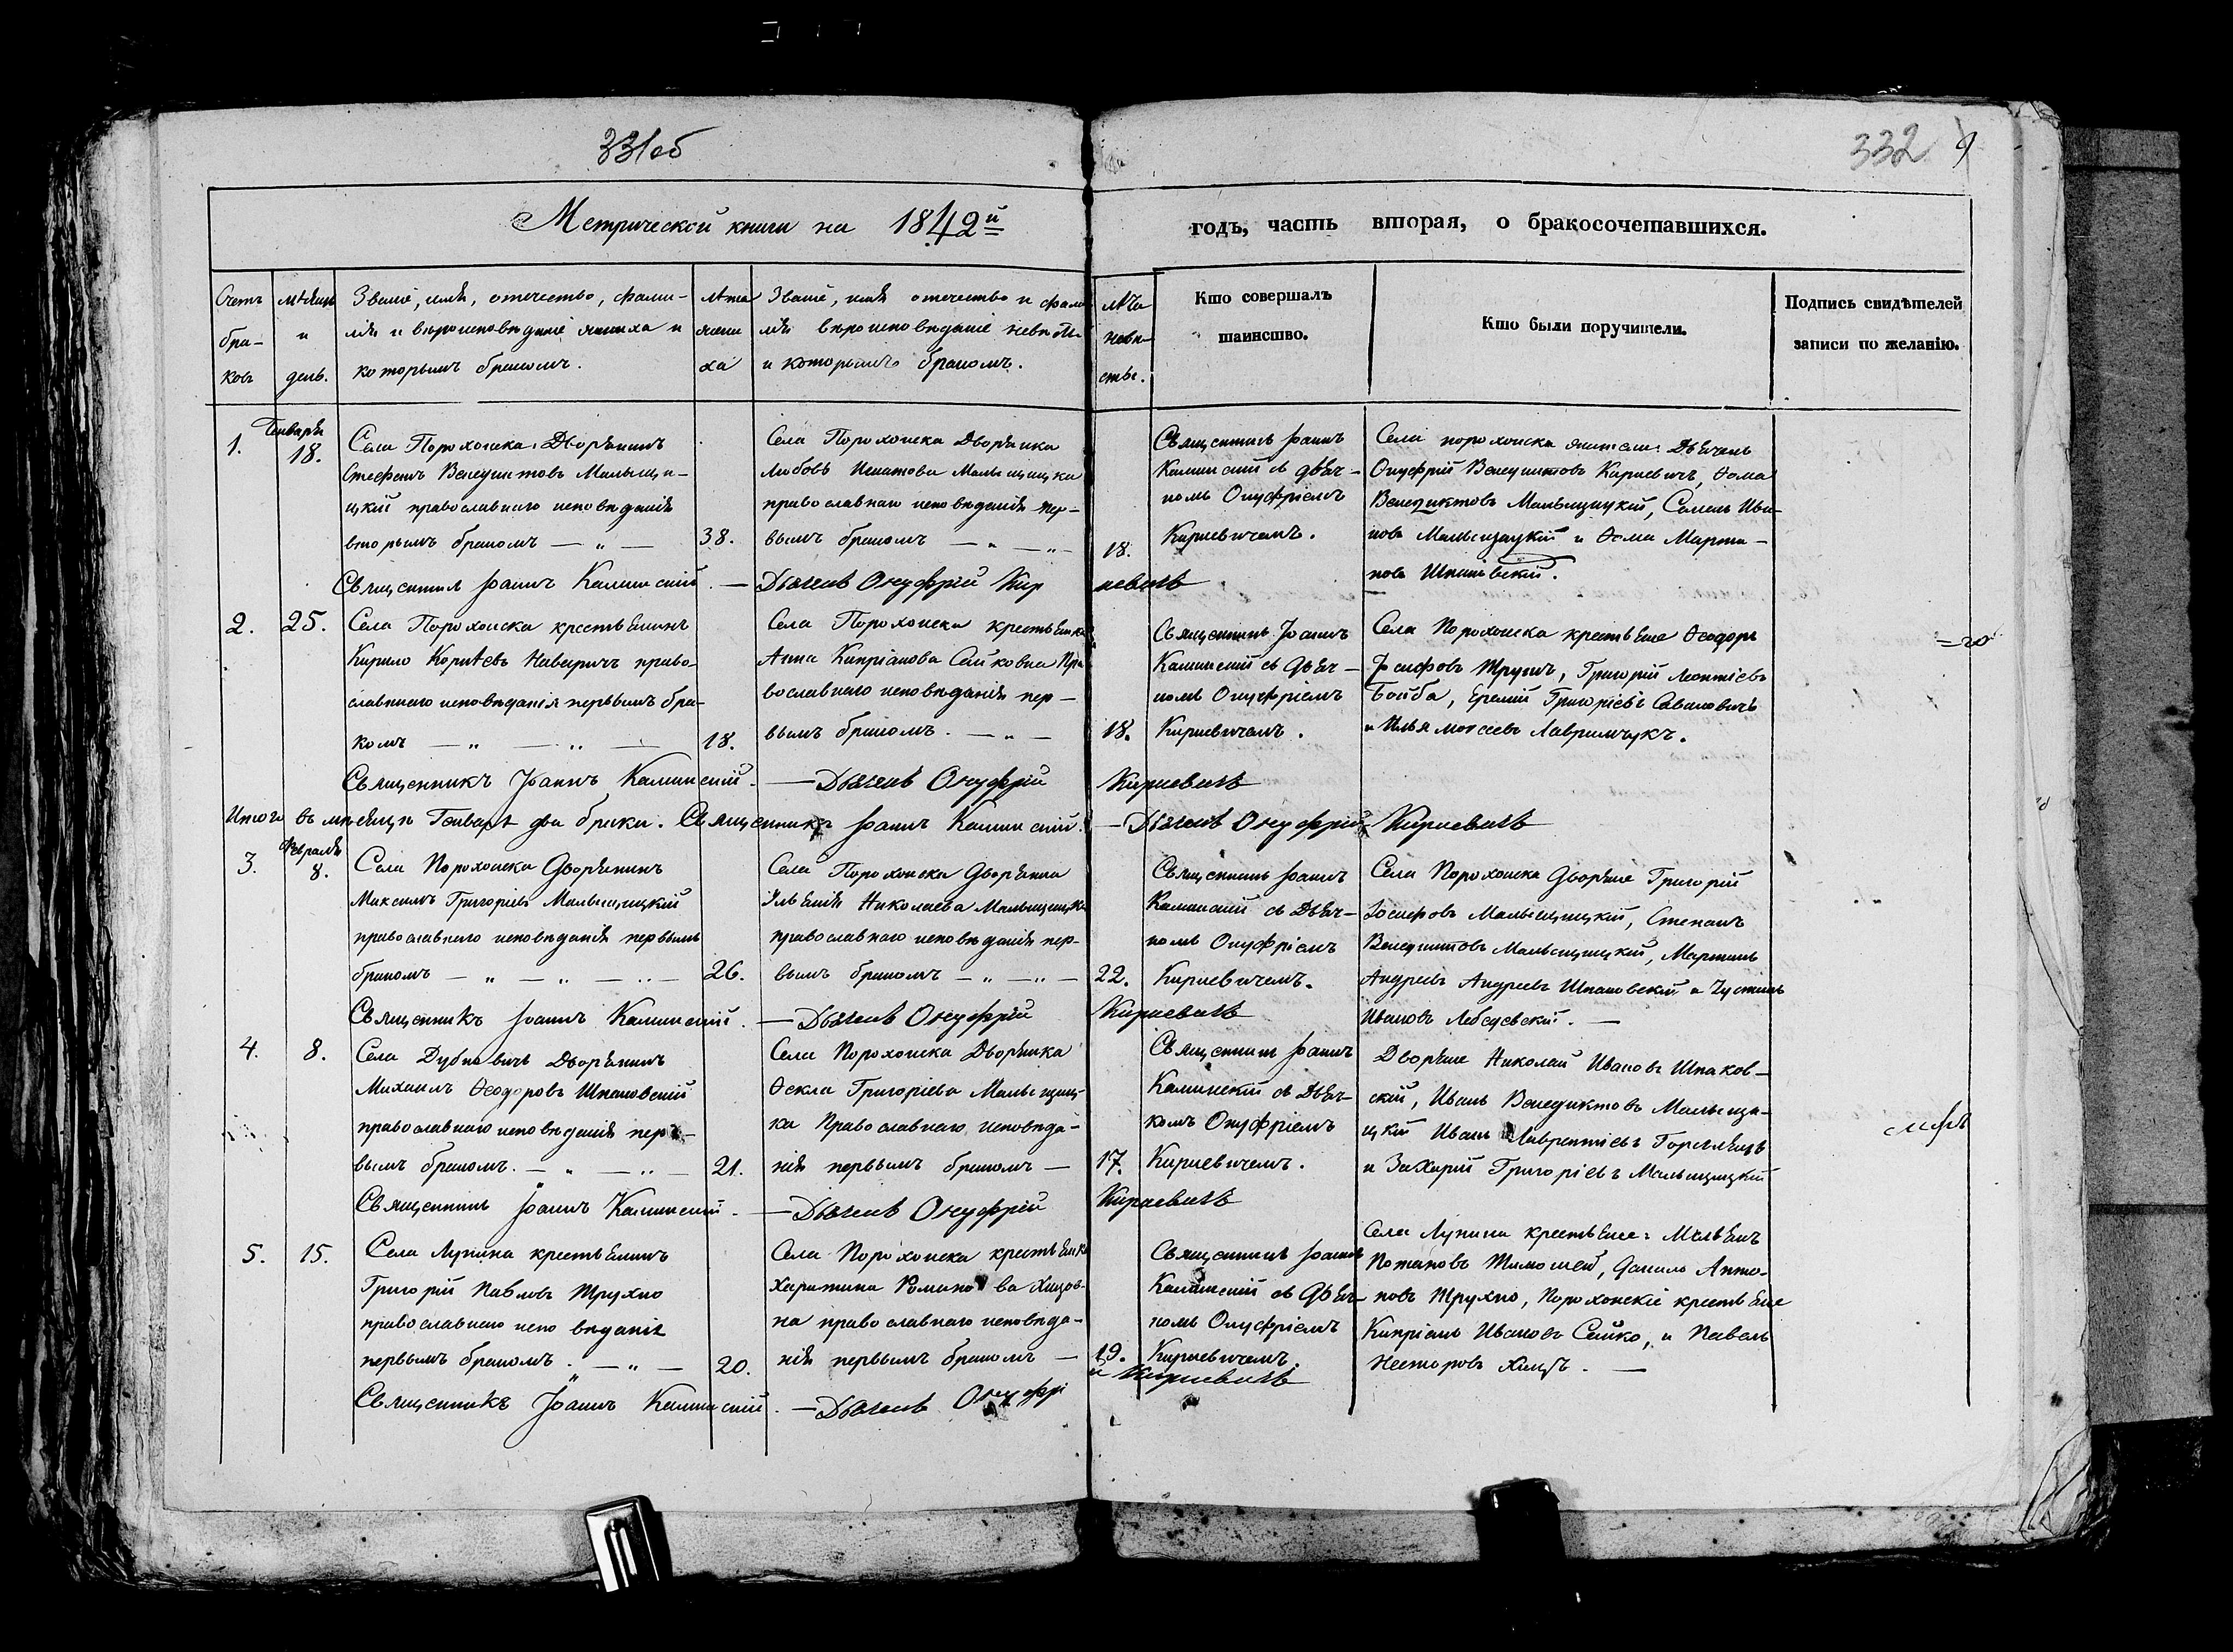 331об
332 9
Метрической книги на 1842й
годъ, часть вторая, о бракосочетавшихся.
Счетъ бра-ковъ
мѣсяцъ и день.
Званіе, имя, отечество, фами-
лія и вѣроисповѣданіе жениха и
которымъ бракомъ.
лѣта жени ха
Званіе, имя отечество и фами
лія вѣроисповѣданіе невѣсты
и которымъ бракомъ.
лѣта невѣ-сты.
Кто совершалъ
таинство.
Кто были поручители.
Подпись свидѣтелей
записи по желанію.
1.
Генваря
18.
Села Порохонска Дворянинъ
Стефанъ Венедиктовъ Малыщи-
цкій православнаго исповѣданія
вторымъ бракомъ — „ —
38.
Села Порохонска Дворянка
Любовь Игнатова Малыщицка
православнаго исповѣданія пер-
вымъ бракомъ — „ — „ —
18.
Священникъ Іоаннъ
Калинскій съ дьяч-
комъ Онуфріемъ
Кирпевичемъ.
Села порохонска жители: Дьячекъ
Онуфрій Венедиктовъ Кирпевичъ, Ѳома
Венедиктовъ Малыщицкій, Семенъ Ива-
новъ Малыщицкій и Ѳома Марти-
новъ Шпаковскій.
Священникъ Іоаннъ Калинскій. — Дьячекъ Онуфрій Кирпевичъ
2.
25.
Села Порохонска крестьянинъ
Кирило Корнѣевъ право-
славнаго исповѣданія первымъ бра-
комъ — „ — „ —
18.
Села Порохонска крестьянка
Анна Кипріанова Сайковна Пра
вославнаго исповѣданія пер-
вымъ бракомъ. — „ —
18.
Священникъ Іоаннъ
Калинскій съ дьяч-
комъ Онуфріемъ
Кирпевичемъ.
Села Порохонска крестьяне Ѳеодоръ
Іосифовъ Григорій Леонтіевъ
Еремій Григоріевъ Савановичъ
и Илья Моисеевъ Лавримчукъ.
Священникъ Іоаннъ Калинскій. — Дьячекъ Онуфрій Кирпевичъ
Итого въ мѣсяцѣ Генварѣ два брака. Священникъ Іоаннъ Калинскій. — Дьячекъ Онуфрій Кирпевичъ
3.
Февраля
8.
Села Порохонска Дворянинъ
Максимъ Григоріевъ Малыщицкій
православнаго исповѣданія первымъ
бракомъ — „ — „ — „ —
26.
Села Порохонска Дворянка
Ульянія Николаева Малыщицка
православнаго исповѣданія пер-
вымъ бракомъ — „ — „ —
22.
Священникъ Іоаннъ
Калинскій съ Дьяч-
комъ Онуфріемъ
Кирпевичемъ.
Села Порохонска Дворяне Григорій
Іосифовъ Малыщицкій, Степанъ
Венедиктовъ Малыщицкій, Мартинъ
Андреевъ Андреевъ Шпаковскій и
Ивановъ Лебедевскій. —
Священникъ Іоаннъ Калинскій. — Дьячекъ Онуфрій Кирпевичъ
4.
8.
Села Дубновичъ Дворянинъ
Михаилъ Ѳеодоровъ Шпаковскій
православнаго исповѣданія пер-
вымъ бракомъ. — „ — „ —
21.
Села Порохонска Дворянка
Ѳекла Григоріева Малыщиц-
ка Православнаго исповѣда-
нія первымъ бракомъ —
17.
Священникъ Іоаннъ
Калинскій съ Дьяч-
комъ Онуфріемъ
Кирпевичемъ.
Дворяне Николай Ивановъ Шпаков-
скій, Иванъ Венедиктовъ Малыщи-
цкій Иванъ Лаврентіевъ
и Захарій Григоріевъ Малыщицкій
Священникъ Іоаннъ Калинскій. — Дьячекъ Онуфрій Кирпевичъ
5.
15.
Села Лупина крестьянинъ
Григорій Павловъ Трухно
православнаго исповѣданія
первымъ бракомъ. — „ —
20.
Села Порохонска крестьянка
Харитина Романова
на православнаго исповѣда-
нія первымъ бракомъ —
19.
Священникъ Іоаннъ
Калинскій съ Дьяч-
комъ Онуфріемъ
Кирпевичемъ.
Села Лупина крестьяне:
Потаповъ Данило Анто-
новъ Трухно, Порохонскіе крестьяне
Кипріанъ Ивановъ Сайко, и Павелъ
Несторовъ —
Священникъ Іоаннъ Калинскій. — Дьячекъ Онуфрій Кирпевичъ